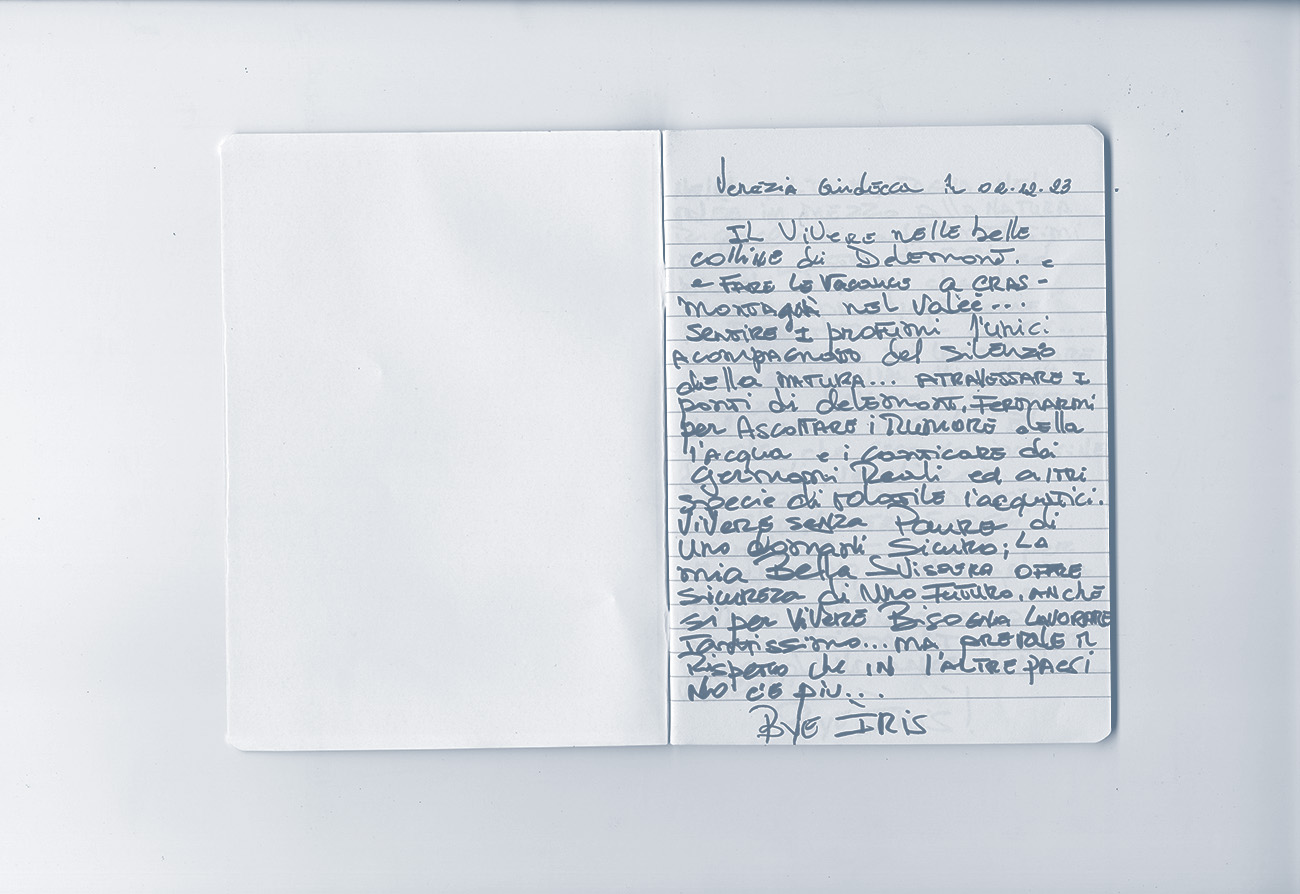 Venezia Giudecca il 02.12.23
IL ViVERE nelle belle
colline di Delemont. e
e FARE LE Vacance a CRAS-
MONTAgnA NEL Valèe...
SENTIRE I profumi l'unici
ACOMPAGNATO del SiLENZIO
dELLA NATURA... ATRAVESSARE I
ponti di delemont, FERMARMI
per ASCOLTARE i RUMORE dELLA
l'ACqua e i canticare dei
Germani Reali ed ALTRI
specie di volatile l'acquatici.
ViVERE SENZA Paure di
Uno domani Sicuro; LA
mia BELLA SViSERA OFFRE
SiCUREZA di UNO FUTURO, ANCHE
Si per ViVERE BISOGNA LAVORARE
TANTissimo... MA PREVALE IL
RispETTO che IN l'ALTRE pAESi
NO' C'E piu...
BYE ÌRIS